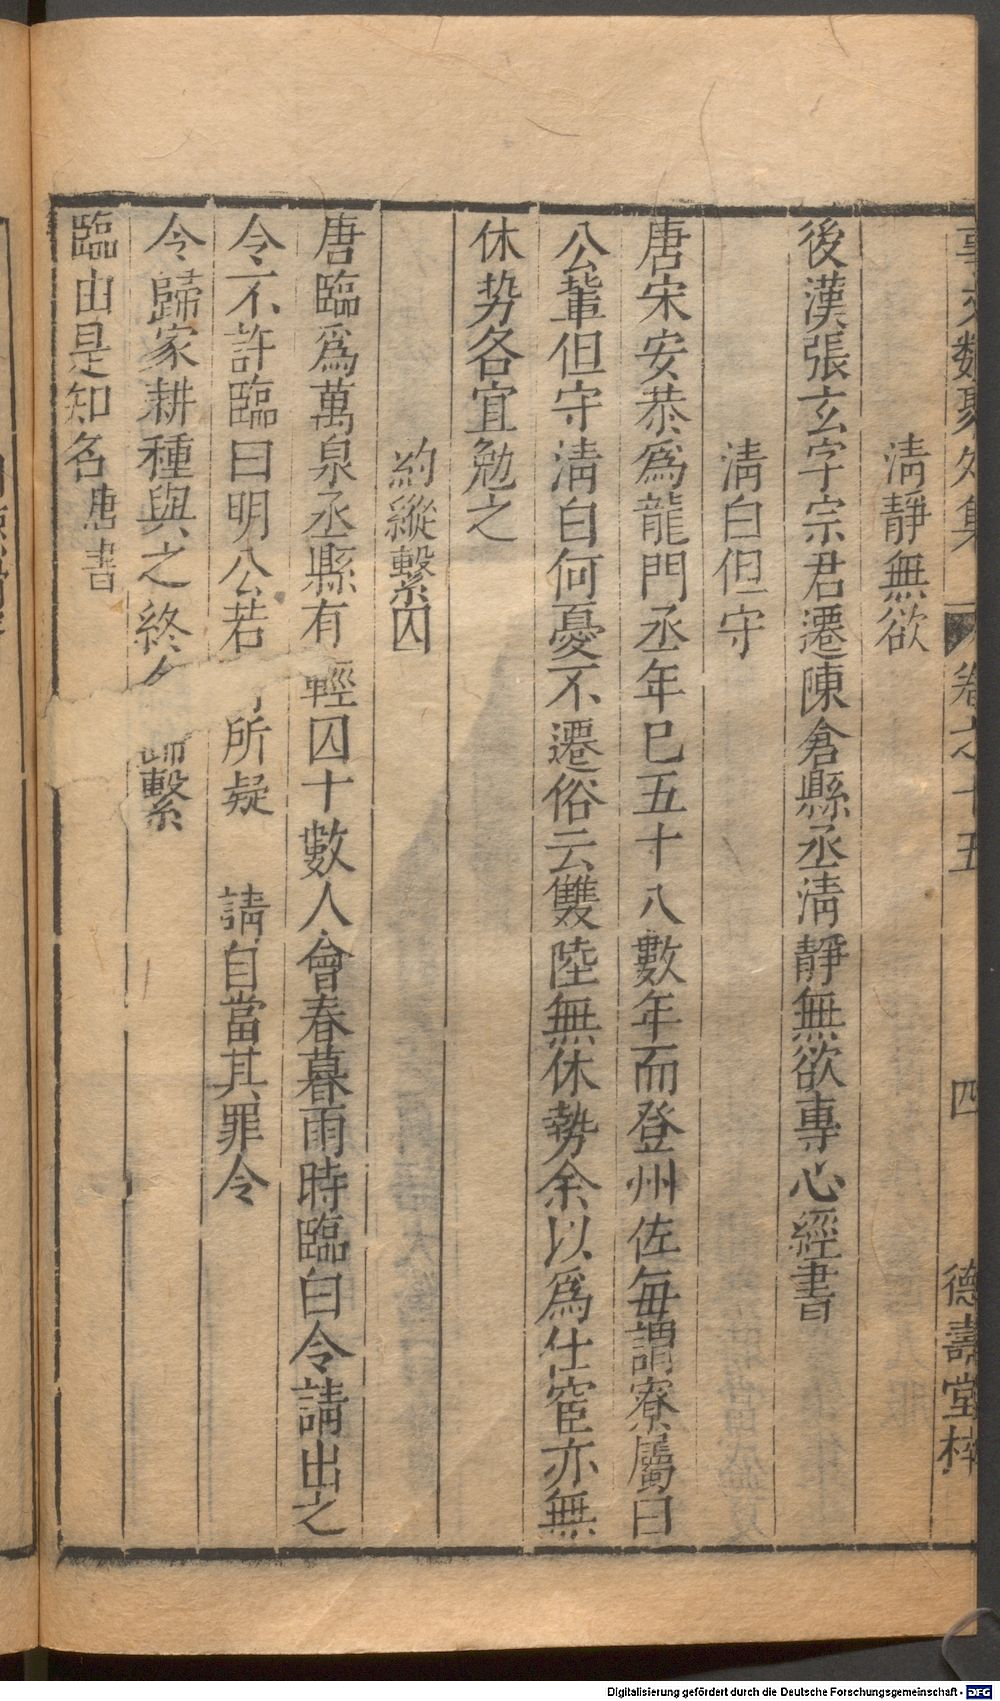 事文類聚外集 卷之十五 四 德壽堂梓
清靜無欲
後漢張玄字宗君遷陳倉縣丞清靜無欲專心經書
清白但守
唐宋安恭爲龍門丞年巳五十八數年而登州佐每謂寮屬曰
公輩但守清白何憂不遷俗云雙陸無休勢余以爲仕宦亦無
休势各宜勉之
約縱繫囚
唐臨爲萬泉丞縣有輕囚十數人會春暮雨時臨白令請出之
令不許臨曰明公若所疑請自當其罪令
令歸家耕種與之終繫
臨由是知名唐書
Digitalisierung gefördert durch die Deutsche Forschungsgemeinschaft - DFG